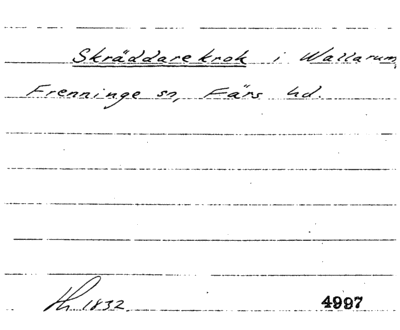 Skräddarekrok i Wallarum,
Frenninge sn, Färs hd.
1832 4997